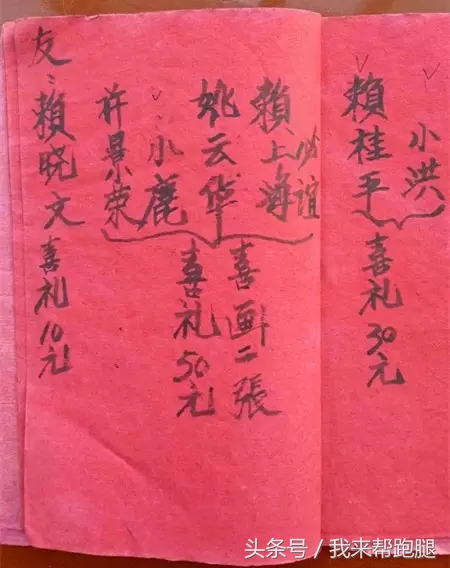 小洪
賴桂平
喜礼30元
必谊
賴上海
姚云华
小鹿
許景荣
喜画二張
喜礼50元
友：賴晓文喜礼10元
头条号 / 我来帮跑腿